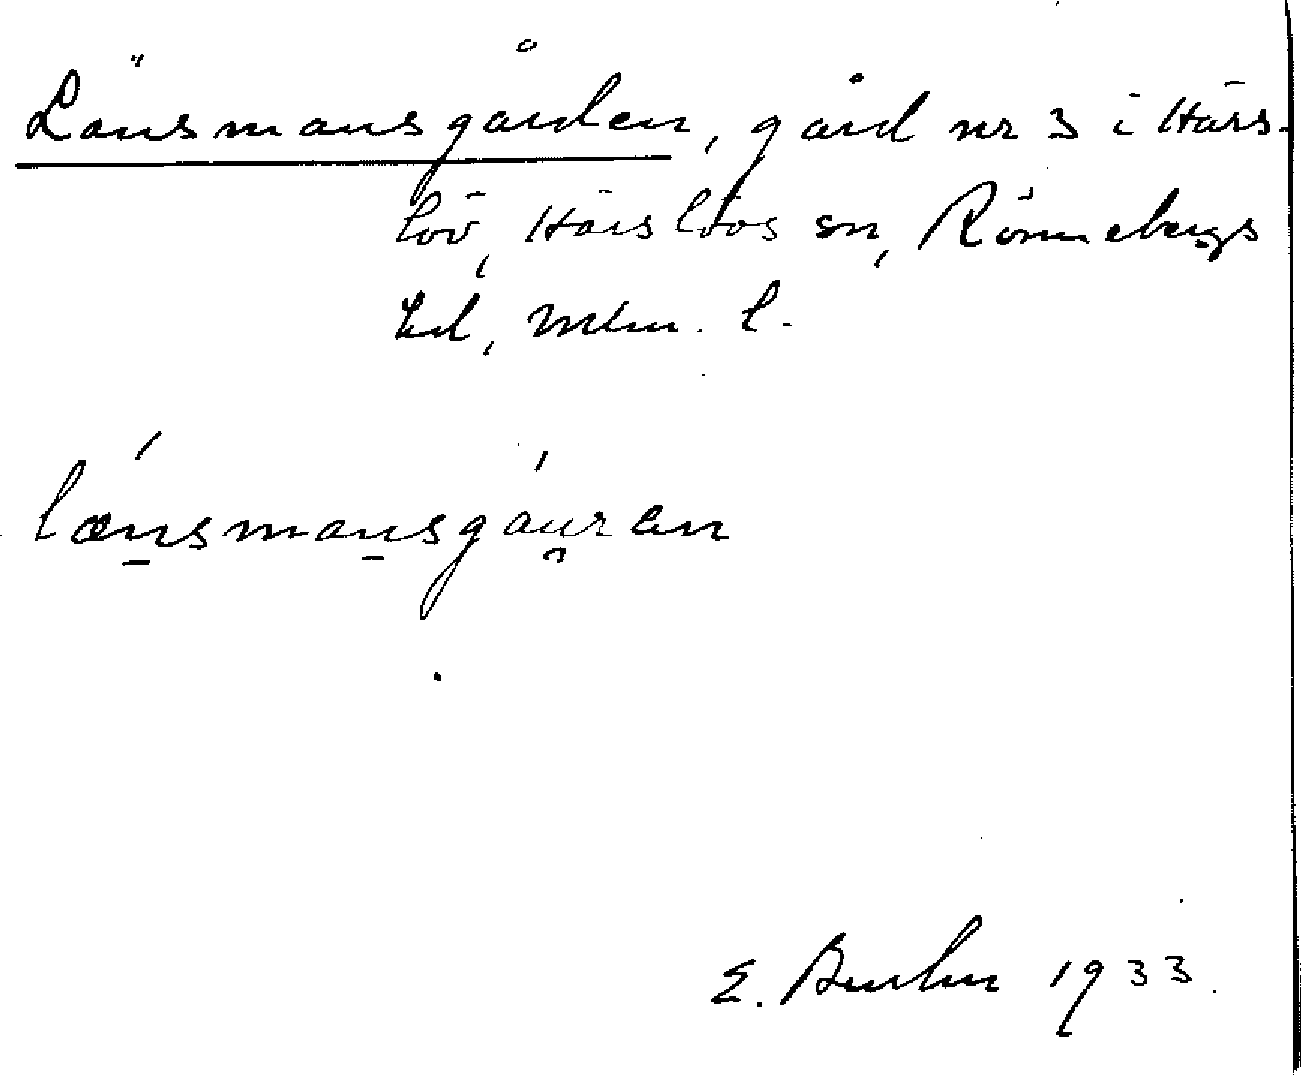 Länsmansgården, gård nr 3 i Härs-
löv, Härslövs sn, Rönnebergs
hd, Mlm. l.
lænsmansgáu̯ran
E. 1933.